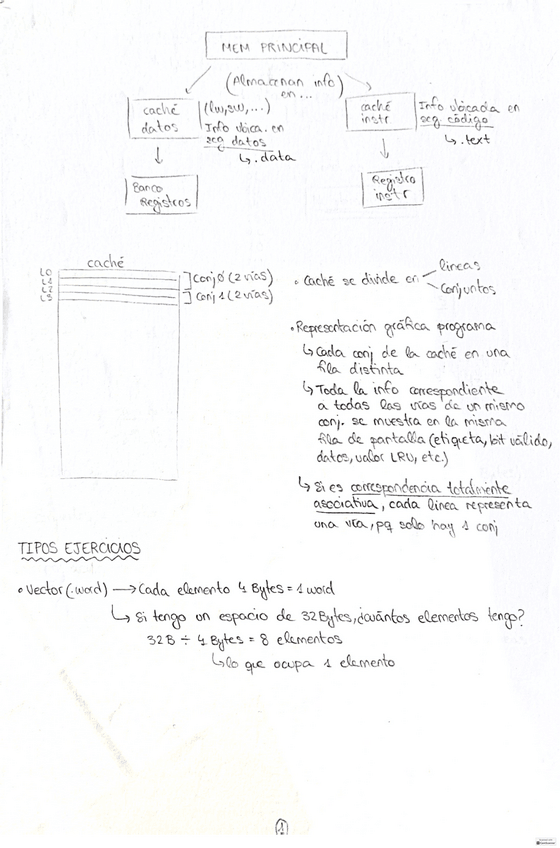 MEM PRINCIPAL
(Almacenan info
en...)
caché
datos
(lw,sw,...)
Info ubica. en
seg datos
↳ .data
caché
instr
Info ubicada en
seg. código
↳ .text
Banco
Registros
Registro
instr
caché
L0
L1
L2
L3
Conj 0 (2 vías)
Conj 1 (2 vías)
• Caché se divide en
líneas
Conjuntos
• Representación gráfica programa
↳ Cada conj de la caché en una
fila distinta
↳ Toda la info correspondiente
a todas las vías de un mismo
conj. se muestra en la misma
fila de pantalla (etiqueta, bit válido,
datos, valor LRU, etc.)
↳ Si es correspondencia totalmente
asociativa, cada línea representa
una vía, pq solo hay 1 conj
TIPOS EJERCICIOS
• Vector (.word) → Cada elemento 4 Bytes = 1 word
↳ Si tengo un espacio de 32 Bytes, ¿cuántos elementos tengo?
32B ÷ 4 Bytes = 8 elementos
↳ lo que ocupa 1 elemento
1